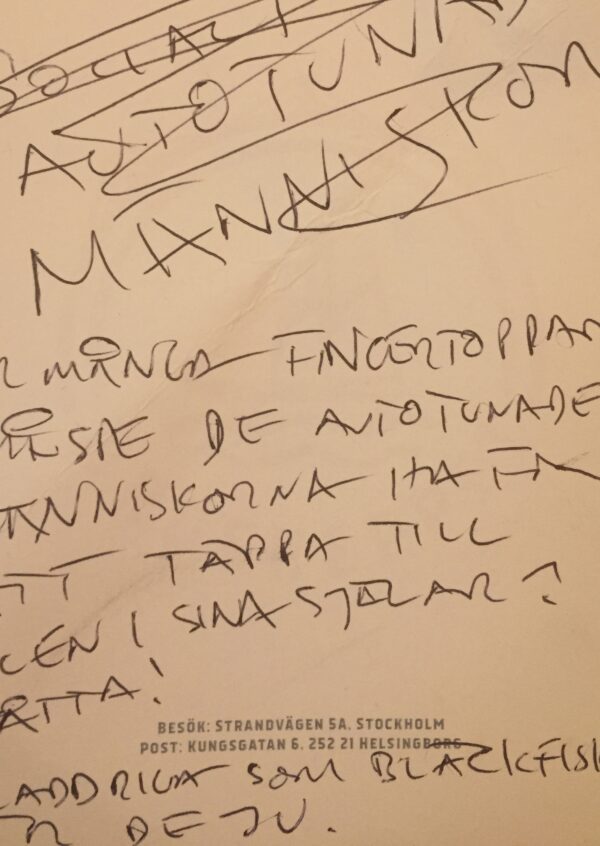 AUTOTUNAD
MÄNNISKOR
R MÅNGA FINGERTOPPAR
MÅSTE DE AUTOTUNADE
MÄNNISKORNA HA
TT TÄPPA TILL
LEN I SINA SJÄLAR?
ÅTTA!
BESÖK: STRANDVÄGEN 5A, STOCKHOLM
POST: KUNGSGATAN 6, 252 21 HELSINGBORG
LADDRIGA SOM BLÄCKFISK
ÄR DE JU.